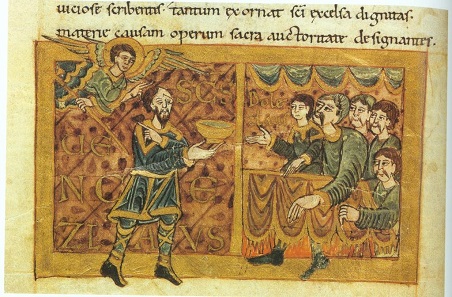 uiciose scribentis. tantum exornat sci excelsa dignitas.
materie causam operum sacra auctoritate designantes.
SCS
UE
NC E
ZLAVS